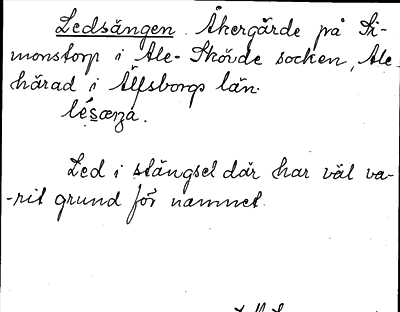 Ledsängen. Åkergärde på Si-
monstorp i Ale-Skövde socken, Ale
härad i Älfsborgs län.
Led i stängsel där har väl va-
-rit grund för namnet.